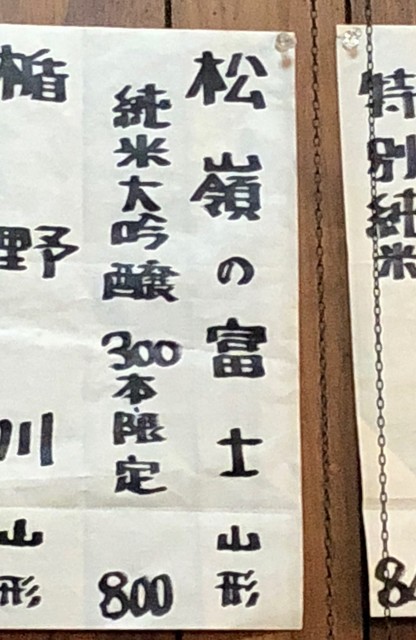 特別純米
84
松嶺の富士 山形
純米大吟醸 300本限定 800
楯野川 山形